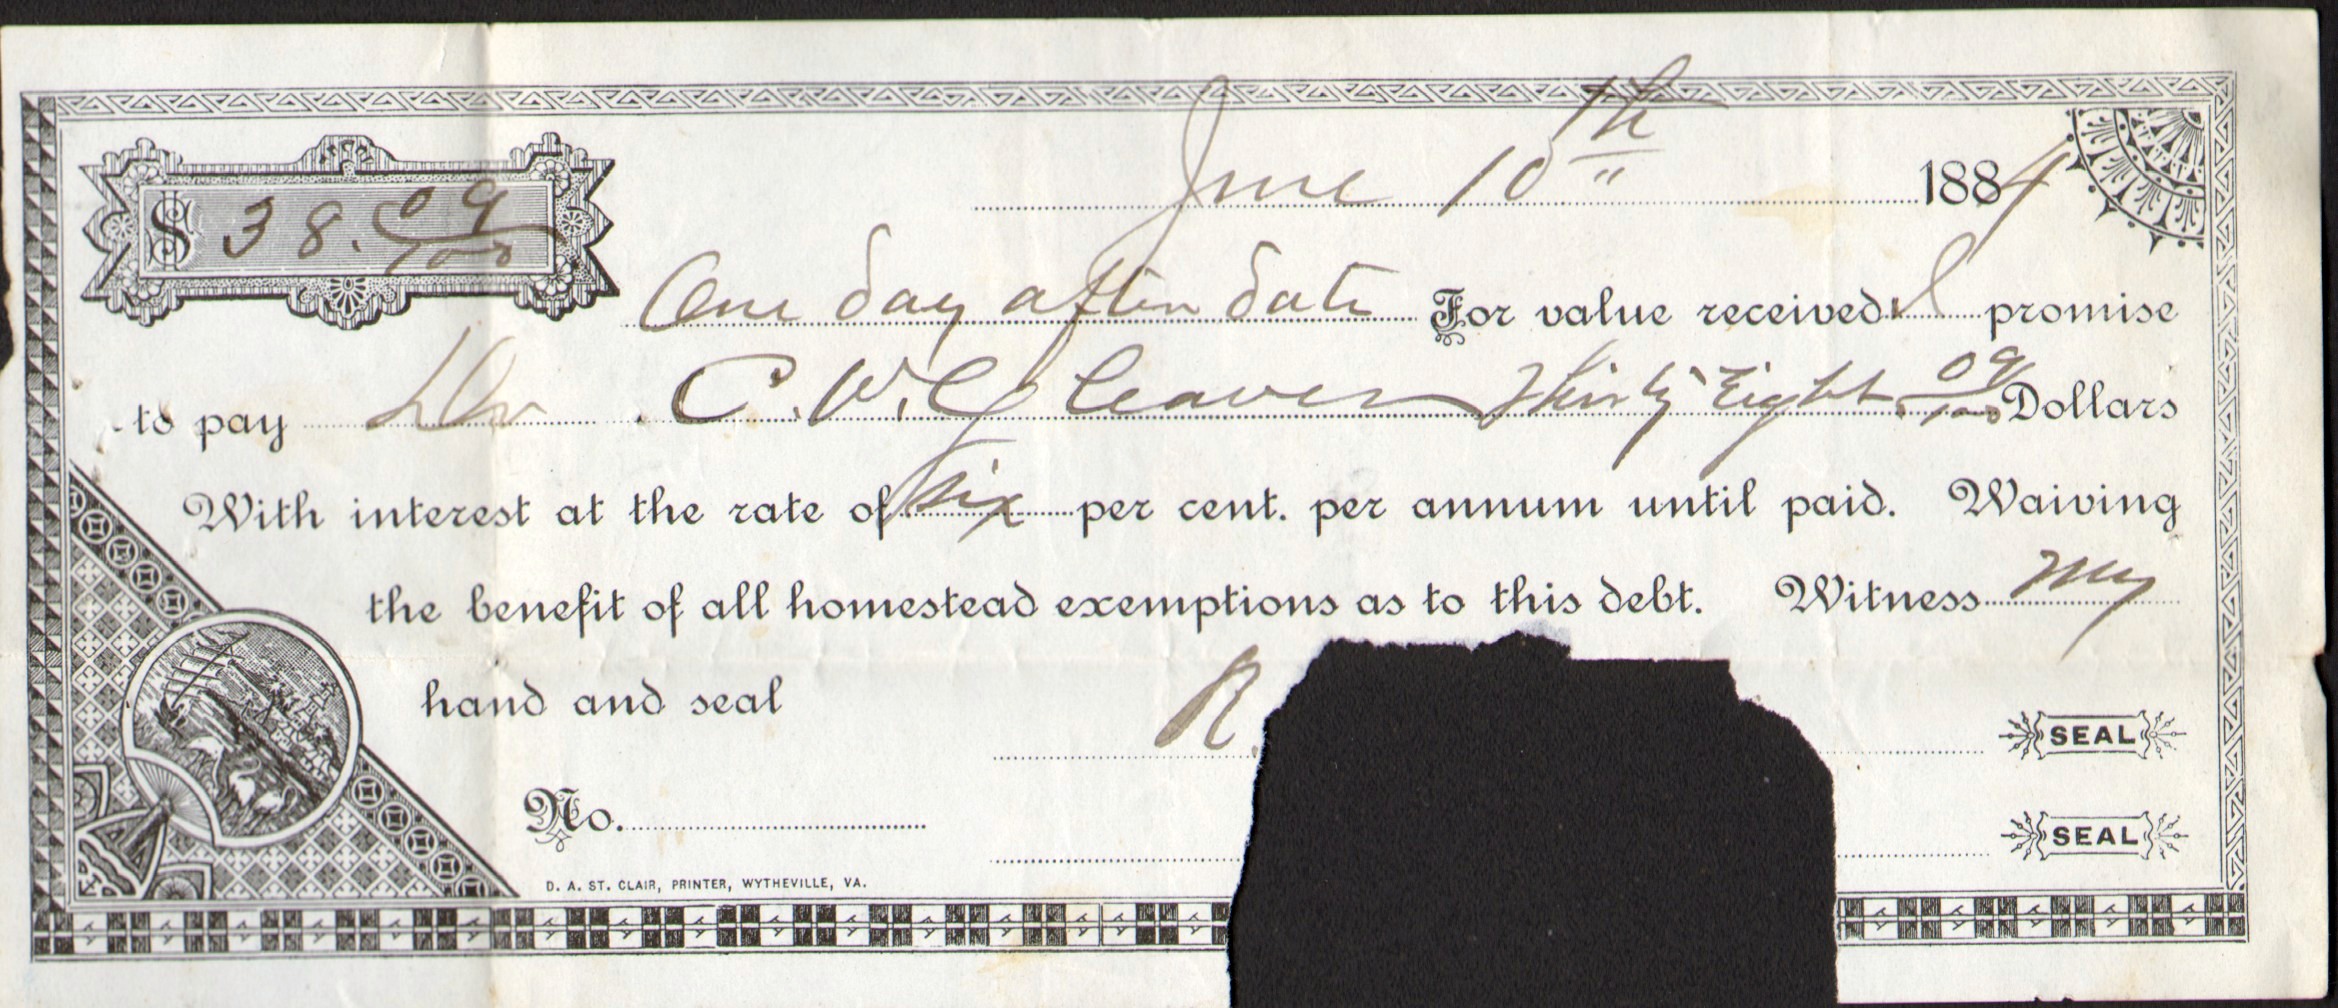 June 10th 1884
$ 38.09/100
One day after date For value received I promise
to pay Dr. C. W. Cleaver Thirty Eight 09/100 Dollars
With interest at the rate of six per cent. per annum until paid. Waiving
the benefit of all homestead exemptions as to this debt. Witness my
hand and seal
R. SEAL
No.
SEAL
D. A. ST. CLAIR, PRINTER, WYTHEVILLE, VA.